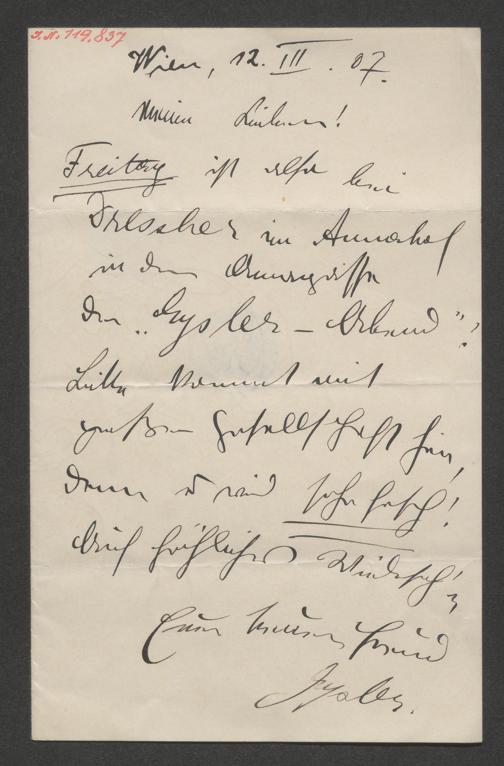 I.N. 119.837
Wien, 12. III. 07.
Meine Lieben!
Freitag ist also bei
Dressler im Annahof
in der Annagasse
der „Eysler – Abend"!
Bitte kommt mit
großer Gesellschaft hin,
denn es wird sehr fesch!
Auf fröhliches Wiederseh'n
Euer treuer Freund
Eysler.